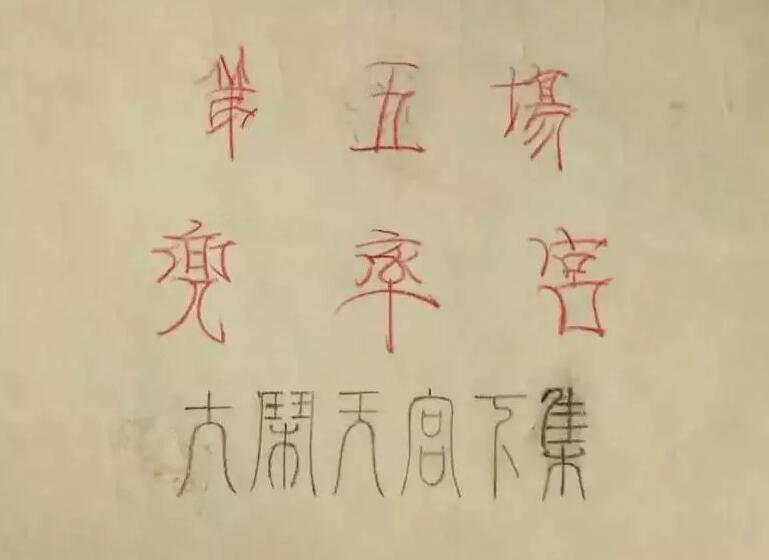 第五場
兜率宮
大鬧天宮下集